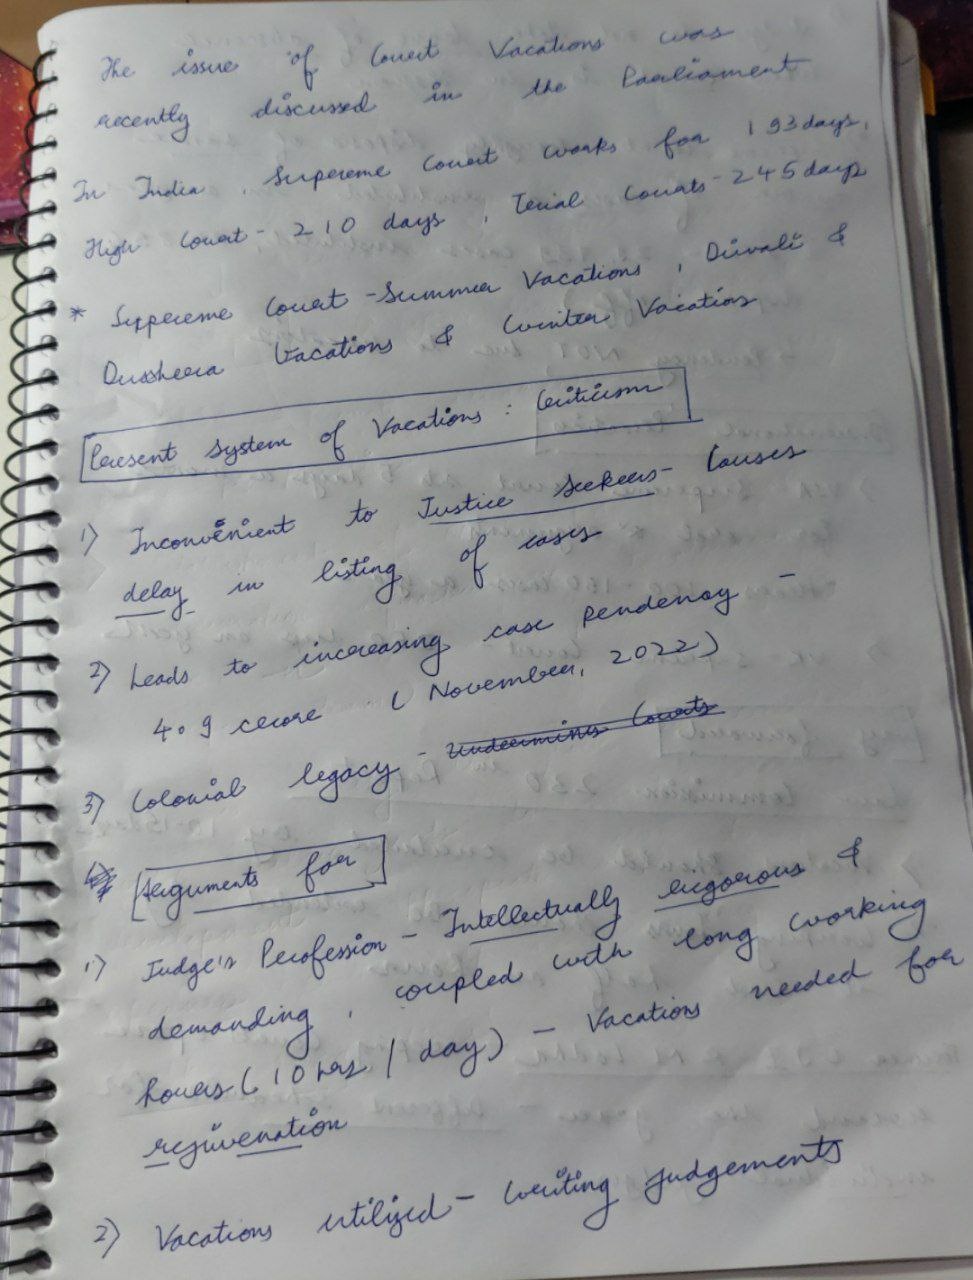 The issue of Court Vacations was
recently discussed in the Parliament
In India, Supreme Court works for 193 days,
High Court - 210 days, Trial Courts - 245 days
* Suppreme Court - Summer Vacations, Diwali &
Dussheera Vacations & Winter Vacations
Present System of Vacations : Criticism
1) Inconvenient to Justice Seekers - Causes
delay in listing of cases
2) Leads to increasing case pendency -
4.9 crore (November, 2022)
3) Colonial legacy - Undermines Courts
Arguments for
1) Judge's Profession - Intellectually rugorous &
demanding, coupled with long working
hours (10 hrs / day) - Vacations needed for
rejuvenation
2) Vacations utilized - writing judgements